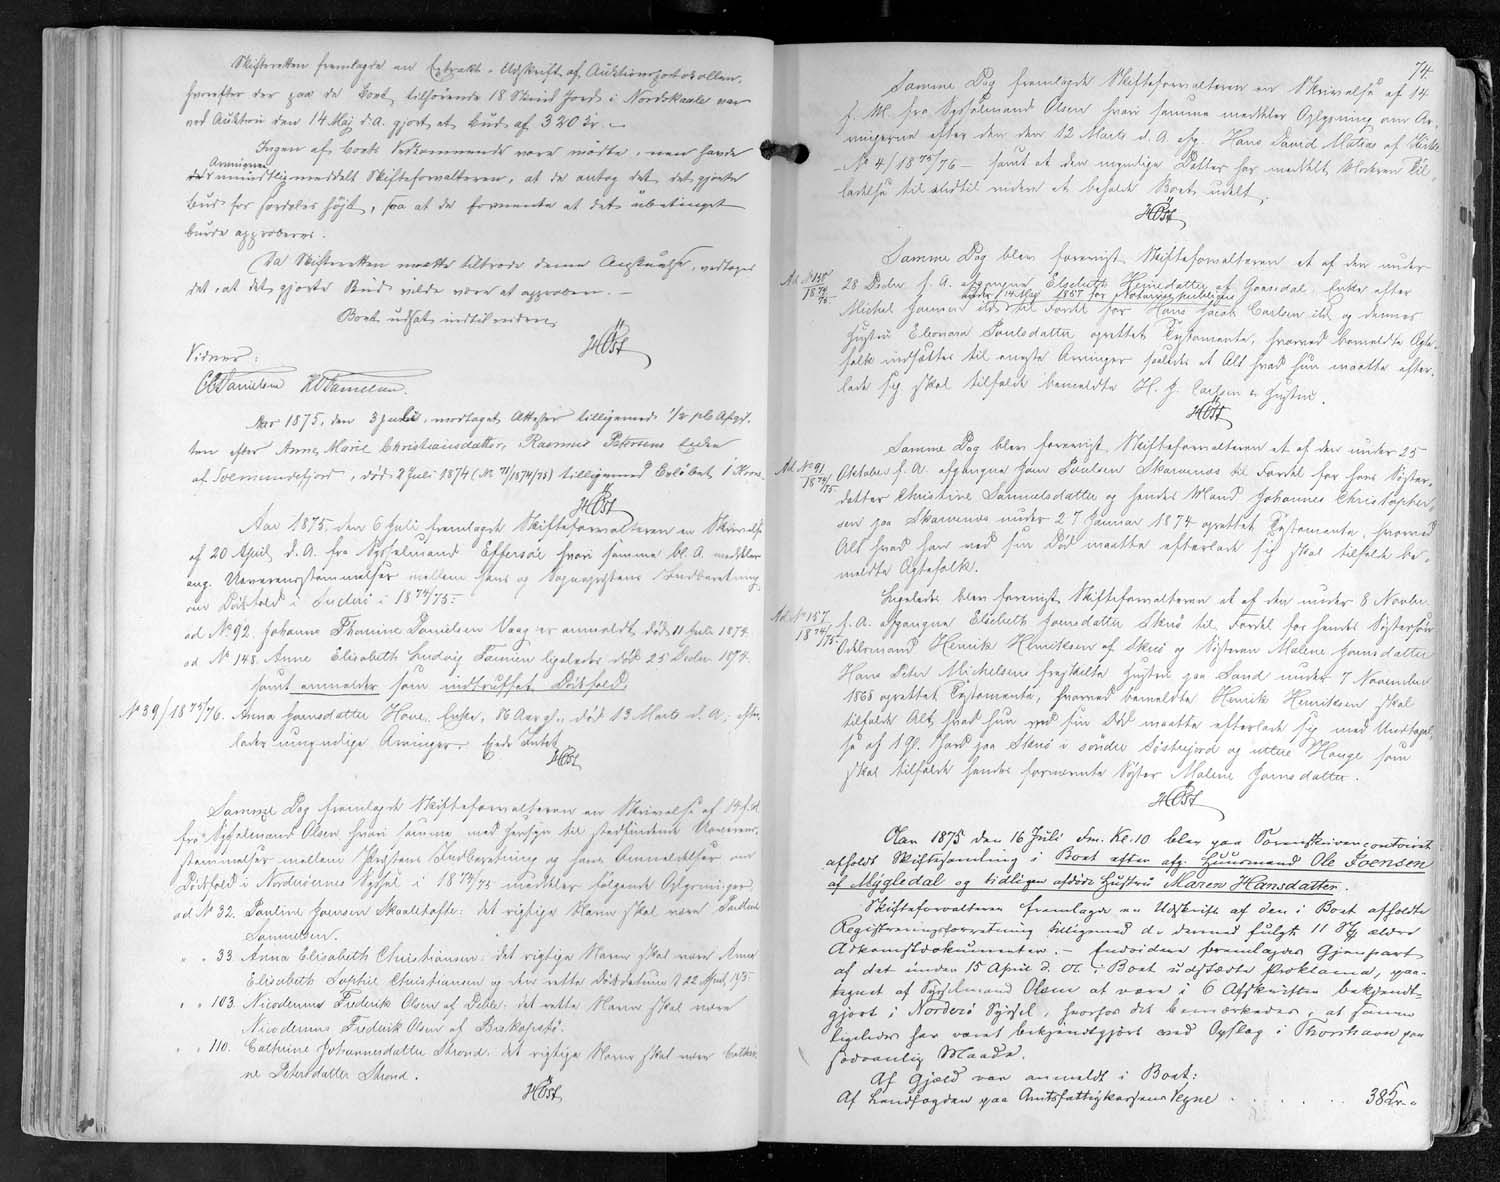 Skifteretten fremlagde en Extrakt-Udskrift af Auktionsprotokollen,
hvorefter der paa de Boet tilhørende 18 Skind Jord i Nordskaale var
ved Auktion den 14 Maj d.A. gjort et Bud af 320 Kr. –
Ingen af Boets Vedkommende vare mødte, men havde
Arvingerne
mundtlig meddelt Skifteforvalteren, at de antog det det gjorte
Bud for særdeles højt, saa at de formente at det ubetinget
burde approberes.
Da Skifteretten maatte tiltræde denne Anskuelse, vedtoges
det, at det gjorte Bud vilde være at approbere. –
Boet udsat indtil videre.
Høst
Vidner:
CCDanielsen HDDanielsen
Aar 1875, den 3 Juli, modtaget Attester tilligemed ½ pCt Afgif-
ten efter Anne Marie Christiansdatter, Rasmus Petersens Enke
af Tvermundefjord, død 2 Juli 1874 (No 71/1874/75) tilligemed Beløbet 1 Krone
Høst
Aar 1875 den 6 Juli fremlagde Skifteforvalteren en Skrivelse
af 20 April d. A. fra Sysselmand Effersøe hvori samme bl. A. meddeler
ang. Uoverensstemmelser mellem hans og Sognepræstens Indberetning
om Dødsfald i Suderø i 1874/75:
ad No 92. Johanne Thomine Danielsen Vaag er anmeldt død 11 Juli 1874.
ad No 148. Anne Elisabeth Ludvig Famien ligeledes død 25 Decbr 1874.
samt anmelder som indtruffet Dødsfald.
No 39/1875/76. Anna Joensdatter Hove, Enke, 86 Aar gl., død 13 Marts d. A.; efter-
lader umyndige Arvinger. Ejede Intet.
Høst
Samme Dag fremlagde Skifteforvalteren en Skrivelse af 14 f.M.
fra Sysselmand Olsen hvori samme med Hensyn til stedfindende Uoverens-
stemmelser mellem Præstens Indberetning og hans Anmeldelser om
Dødsfald i Norderøernes Syssel i 1874/75 meddeler følgende Oplysninger.
ad No 32. Pauline Joensen Skaaletofte: det rigtige Navn skal være Pauline
Samuelsen.
" " 33. Anna Elisabeth Christiansen: det rigtige Navn skal være Anna
Elisabeth Sophie Christiansen og den rette Dødsdatum 22 April 1875.
" " 103. Nicodemus Frederik Olsen af Deble: det rette Navn skal være
Nicodemus Frederik Olsen af Biskopsstø.
" " 110. Cathrine Johannesdatter Strond: det rigtige Navn skal være Cathri-
ne Petersdatter Strond.
Høst
74.
Samme Dag fremlagde Skifteforvalteren en Skrivelse af 14
f. M. fra Sysselmand Olsen hvori samme meddeler Oplysning om Ar-
vingerne efter den den 12 Marts d. A. afg. Hans David Matias af Kirke
– No 4/1875/76 – samt at den myndige Datter har meddelt Moderen Til-
ladelse til indtil videre at beholde Boet udelt.
Høst
Samme Dag blev forevist Skifteforvalteren et af den under
Ad No 138
1874/75.
28 Decbr f. A. afgangne Elsebeth Heinedatter af Gaasdal, Enke efter
under 14 Maj 1857 for Notarius publicus
Michel Joensen ibd til Fordel for Hans Jacob Carlsen ibd og dennes
Hustru Eleonora Poulsdatter oprettet Testamente, hvorved bemeldte Ægte-
folk indsættes til eneste Arvinger saaledes at Alt hvad hun maatte efter-
lade sig skal tilfalde bemeldte H. J. Carlsen & Hustru.
Høst
Samme Dag blev forevist Skifteforvalteren et af den under 25
Ad No 91
1874/75.
Oktober f. A. afgangne Joen Poulsen Skaarenæs til Fordel for hans Søster-
datter Christine Samuelsdatter og hendes Mand Johannes Christopher-
sen paa Skaarenæs under 27 Januar 1874 oprettet Testamente, hvorved
Alt hvad han ved sin Død maatte efterlade sig skal tilfalde be-
meldte Ægtefolk.
Ligeledes blev forevist Skifteforvalteren et af den under 8 Novbr.
Ad No 157
1874/75.
f. A. afgangne Elsebeth Joensdatter Skuø til Fordel for hendes Søstersøn
Odelsmand Henrik Henriksen af Skuø og Søsteren Malene Joensdatter
Hans Peter Michelsens fraskilte Hustru paa Sand under 7 November
1868 oprettet Testamente, hvorved bemeldte Henrik Henriksen skal
tilfalde Alt, hvad hun ved sin Død maatte efterlade sig med Undtagel-
se af 1 Gl. Jord paa Skuø i søndre Søstrejord og uttere Hauge som
skal tilfalde hendes fornævnte Søster Malene Joensdatter.
Høst
Aar 1875 den 16 Juli Fm. Kl. 10 blev paa Sorenskrivercontoiret
afholdt Skiftesamling i Boet efter afg. Huusmand Ole Joensen
af Mygledal og tidligere afdøde Hustru Maren Hansdatter.
Skifteforvalteren fremlagde en Udskrift af den i Boet afholdte
Registreringsforretning tilligemed de dermed fulgte 11 St. ældre
Adkomstdokumenter. – Endvidere fremlagdes Gjenpart
af det under 15 April d. A. i Boet udstædte Proklama, paa-
tegnet af Sysselmand Olsen at være i 6 Afskrifter bekjendt-
gjort i Norderø Syssel, hvorhos det bemærkedes, at samme
ligeledes har været bekjendtgjort ved Opslag i Thorshavn paa
sædvanlig Maade.
Af Gjæld var anmeldt i Boet:
Af Landfogden paa Amtsfattigkassens Vegne . . . . . . 385 Kr. "